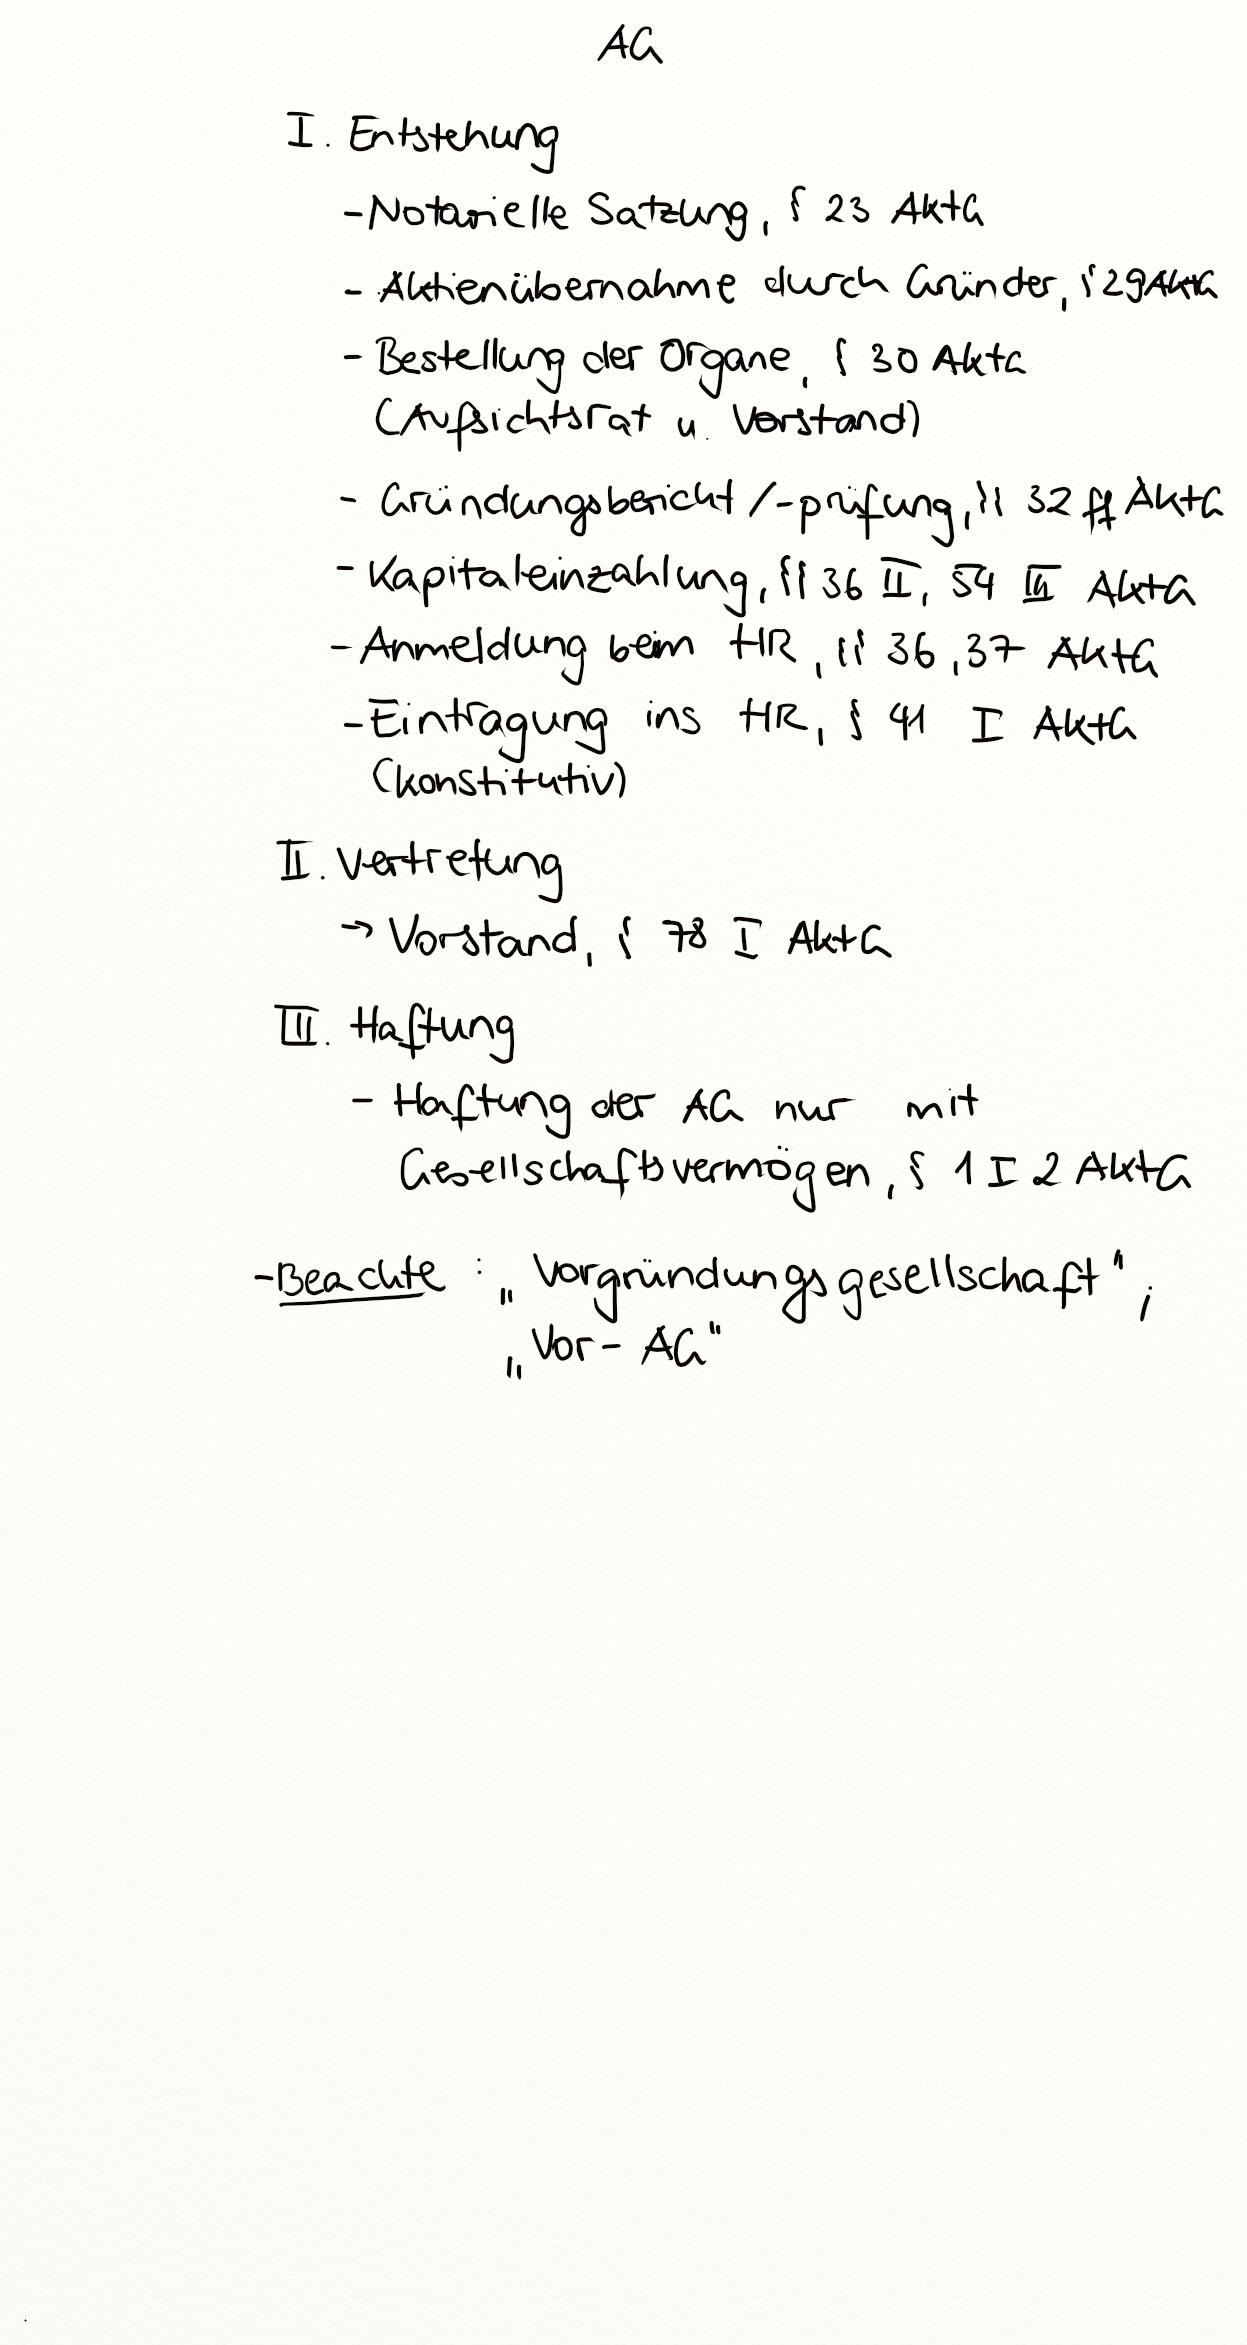 AG
I. Entstehung
- Notarielle Satzung, § 23 AktG
- Aktienübernahme durch Gründer, § 29 AktG
- Bestellung der Organe, § 30 AktG
(Aufsichtsrat u. Vorstand)
- Gründungsbericht/-prüfung, §§ 32 ff AktG
- Kapitaleinzahlung, §§ 36 II, 54 III AktG
- Anmeldung beim HR, §§ 36, 37 AktG
- Eintragung ins HR, § 41 I AktG
(konstitutiv)
II. Vertretung
→ Vorstand, § 78 I AktG
III. Haftung
- Haftung der AG nur mit
Gesellschaftsvermögen, § 1 I 2 AktG
- Beachte : „Vorgründungsgesellschaft";
„Vor-AG"